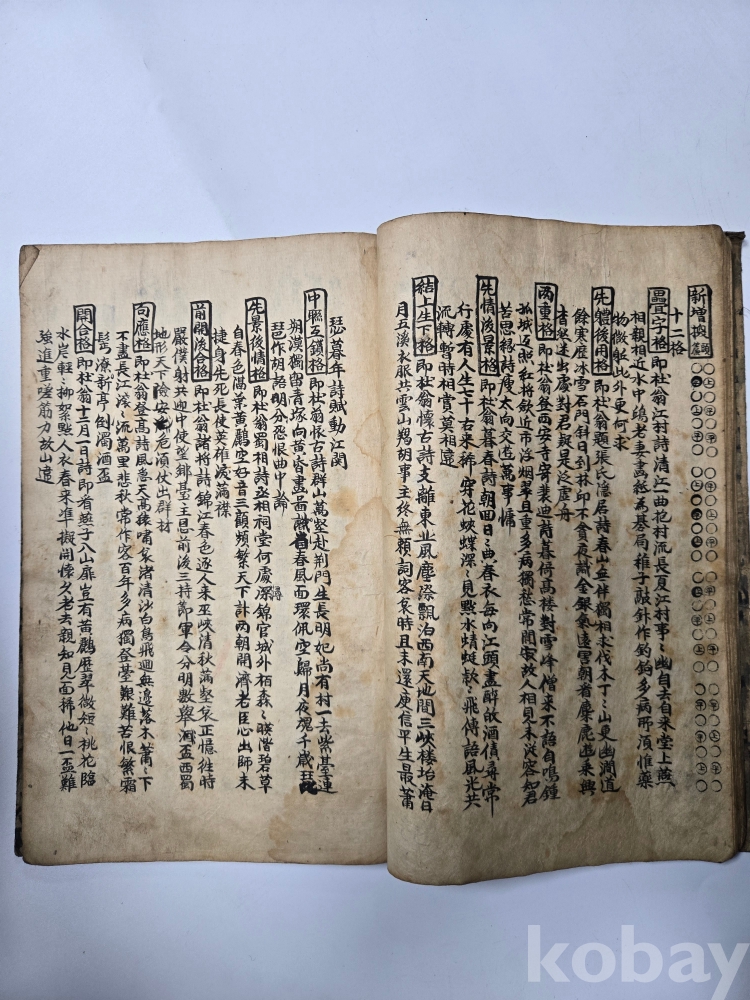 新增
十二格
疊字格 即杜翁江村詩清江一曲抱村流長夏江村事〻幽自去自來堂上燕
相親相近水中鴎老妻畫紙為碁局稚子敲針作釣鉤多病所須惟藥
物微軀此外更何求
先軆後用格 即杜翁題張氏隱居詩春山無伴獨相求伐木丁〻山更幽澗道
餘寒歷冰雪石門斜日到林邱不貪夜識金銀氣遠害朝看麋鹿遊乘興
杳然迷出處對君疑是泛虛舟
兩重格 即杜翁登西安寺寄裴迪詩暮倚高樓對雪峰僧來不語自鳴鍾
孤城返照紅將歛近市浮烟翠且重多病獨愁常閴寂故人相見未從容知君
苦思緣詩瘦太向交遊萬事慵
先情後景格 即杜翁暮春詩朝回日〻典春衣每向江頭盡醉皈酒債尋常
行處有人生七十古來稀穿花蛺蝶深〻見點水蜻蜓欵〻飛傳語風光共
流轉暫時相賞莫相違
結上生下格 即杜翁懷古詩支離東北風塵際飄泊西南天地間三峽樓坮淹日
月五溪衣服共雲山羯胡事主終無賴詞客哀時且未還庾信平生最蕭
瑟暮年詩賦動江関
中聯互鎖格 即杜翁懷古詩群山萬壑赴荆門生長明妃尚有村一去紫臺連
朔漠獨留青塚向黃昏畫啚省春風面環佩空歸月夜魂千歲琵
琶作胡語明分怨恨曲中論
先景後情格 即杜翁蜀相詩丞相祠堂何處尋錦官城外栢森〻暎階碧草
自春色隔葉黃鸝空好音三顧頻繁天下計兩朝開濟老臣心出師未
捷身先死長使英雄淚滿襟
前開後合格 即杜翁諸將詩錦江春色逐人來巫峽清秋滿壑哀正憶徃時
嚴僕射共迎中使望鄉臺主恩前後三持節軍令分明數舉盃西蜀
地形天下險安危須仗出群材
句應格 即杜翁登高詩風急天高猿嘯哀渚清沙白鳥飛廻無邊落木蕭〻下
不盡長江滾〻流萬里悲秋常作客百年多病獨登臺艱難苦恨繁霜
髩潦新亭倒濁酒盃
開合格 即杜翁十二月一日詩即看燕子入山扉豈有黃鸝歷翠微短〻桃花臨
水岸輕〻柳絮點人衣春來準擬開懷久老去親知見面稀他日一盃難
強進重嗟筋力故山違